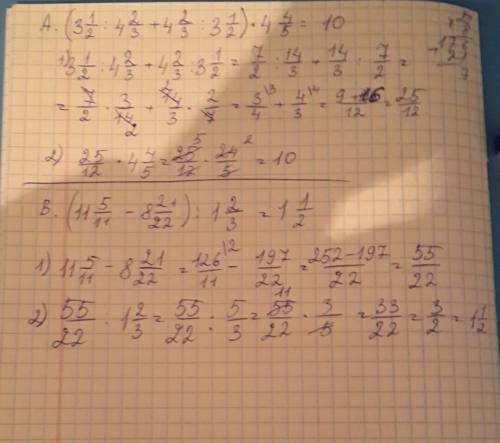 А. (3 1/2 : 4 2/3 + 4 2/3 : 3 1/2) · 4 4/5 = 10
1) 3 1/2 : 4 2/3 + 4 2/3 : 3 1/2 = 7/2 : 14/3 + 14/3 : 7/2 =
= 7/2 · 3/14 + 14/3 · 2/7 = 3/4 + 4/3 = 9+16/12 = 25/12
2) 25/12 · 4 4/5 = 25/12 · 24/5 = 10
В. (11 5/11 - 8 21/22) : 1 2/3 = 1 1/2
1) 11 5/11 - 8 21/22 = 126/11 - 197/22 = 252-197/22 = 55/22
2) 55/22 : 1 2/3 = 55/22 : 5/3 = 55/22 · 3/5 = 33/22 = 3/2 = 1 1/2